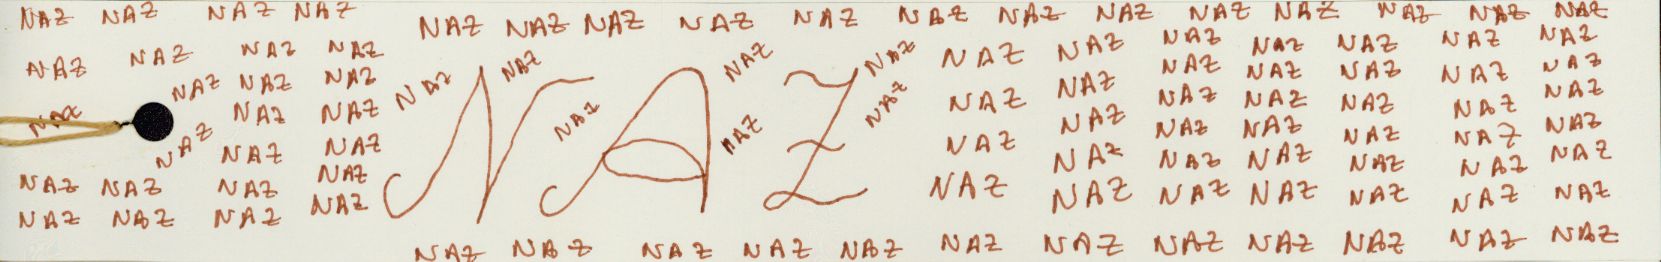 NAZ NAZ NAZ NAZ NAZ NAZ NAZ NAZ NAZ NAZ NAZ NAZ NAZ NAZ NAZ NAZ NAZ
NAZ NAZ NAZ NAZ NAZ NAZ NAZ NAZ NAZ NAZ NAZ NAZ NAZ NAZ NAZ
NAZ NAZ NAZ NAZ NAZ NAZ NAZ NAZ NAZ NAZ
NAZ NAZ NAZ NAZ NAZ NAZ NAZ NAZ NAZ NAZ NAZ NAZ
NAZ
NAZ NAZ NAZ NAZ NAZ NAZ NAZ NAZ NAZ NAZ NAZ
NAZ NAZ NAZ NAZ NAZ NAZ NAZ NAZ NAZ NAZ
NAZ NAZ NAZ NAZ NAZ NAZ NAZ NAZ NAZ NAZ NAZ
NAZ NAZ NAZ NAZ
NAZ NAZ NAZ NAZ NAZ NAZ NAZ NAZ NAZ NAZ NAZ NAZ